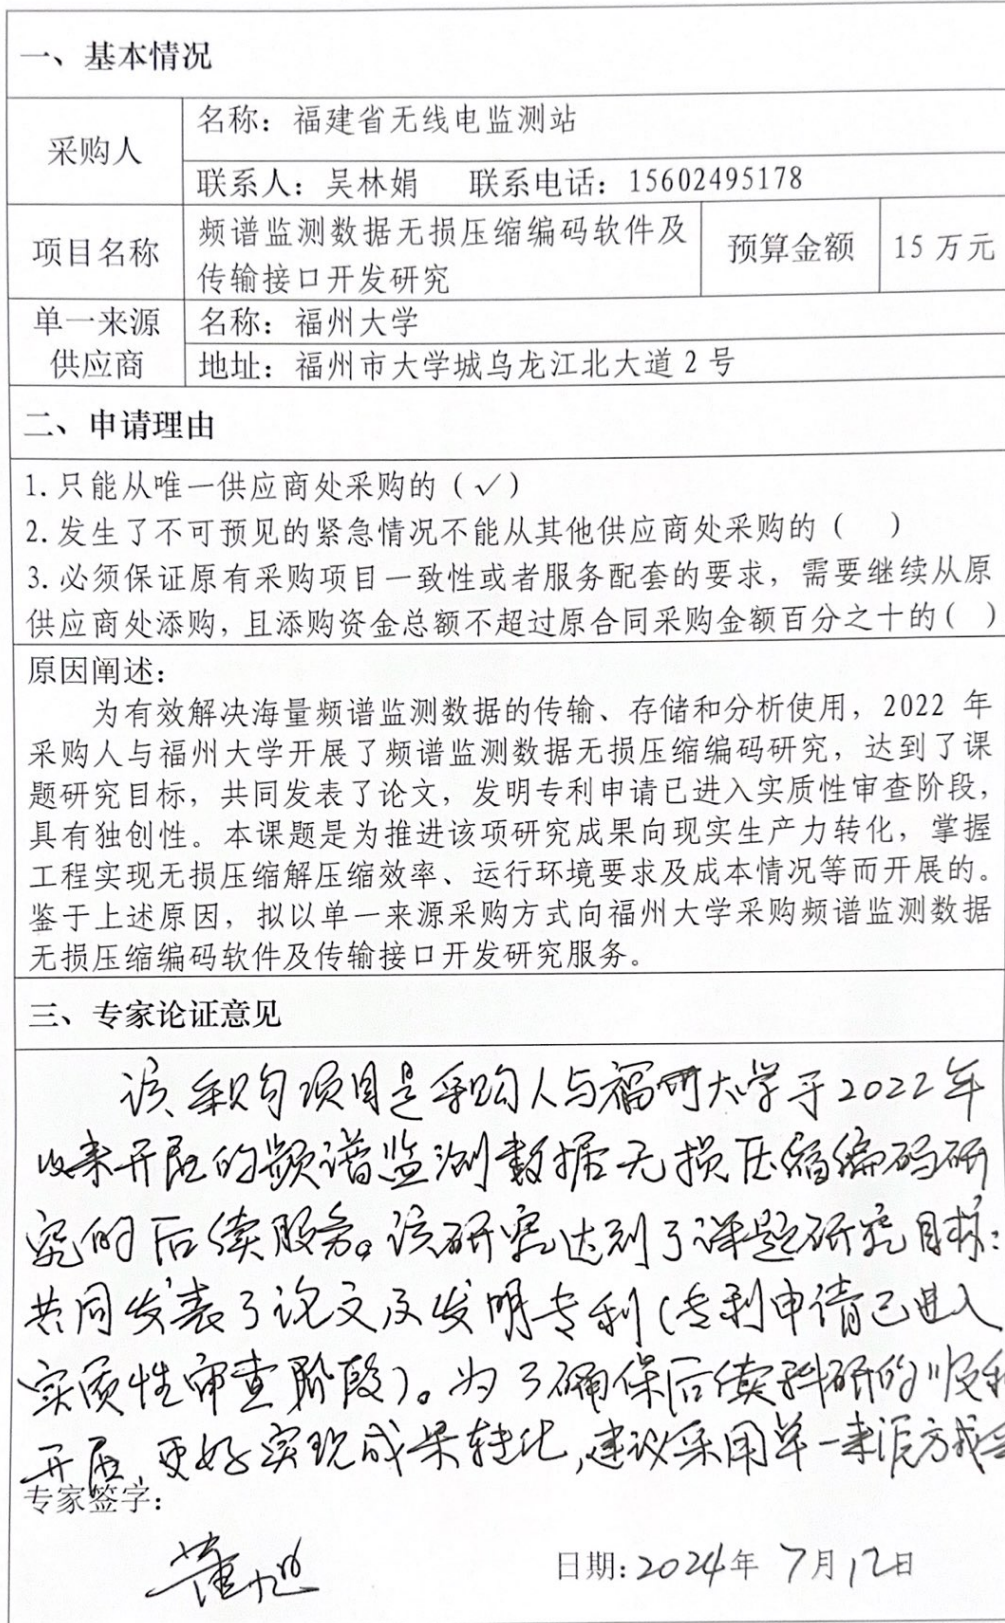 一、基本情况
采购人
名称：福建省无线电监测站
联系人：吴林娟 联系电话：15602495178
项目名称
频谱监测数据无损压缩编码软件及
传输接口开发研究
预算金额
15 万元
单一来源
供应商
名称：福州大学
地址：福州市大学城乌龙江北大道 2 号
二、申请理由
1. 只能从唯一供应商处采购的（✓）
2. 发生了不可预见的紧急情况不能从其他供应商处采购的（ ）
3. 必须保证原有采购项目一致性或者服务配套的要求，需要继续从原
供应商处添购，且添购资金总额不超过原合同采购金额百分之十的（ ）
原因阐述：
为有效解决海量频谱监测数据的传输、存储和分析使用，2022 年
采购人与福州大学开展了频谱监测数据无损压缩编码研究，达到了课
题研究目标，共同发表了论文，发明专利申请已进入实质性审查阶段，
具有独创性。本课题是为推进该项研究成果向现实生产力转化，掌握
工程实现无损压缩解压缩效率、运行环境要求及成本情况等而开展的。
鉴于上述原因，拟以单一来源采购方式向福州大学采购频谱监测数据
无损压缩编码软件及传输接口开发研究服务。
三、专家论证意见
该采购项目是采购人与福州大学于2022年
以来开展的频谱监测数据无损压缩编码研
究的后续服务。该研究达到了课题研究目标：
共同发表了论文及发明专利（专利申请已进入
实质性审查阶段）。为了确保后续科研的顺利
开展，更好实现成果转化，建议采用单一来源方式
专家签字：
董旭
日期：2024年 7月12日